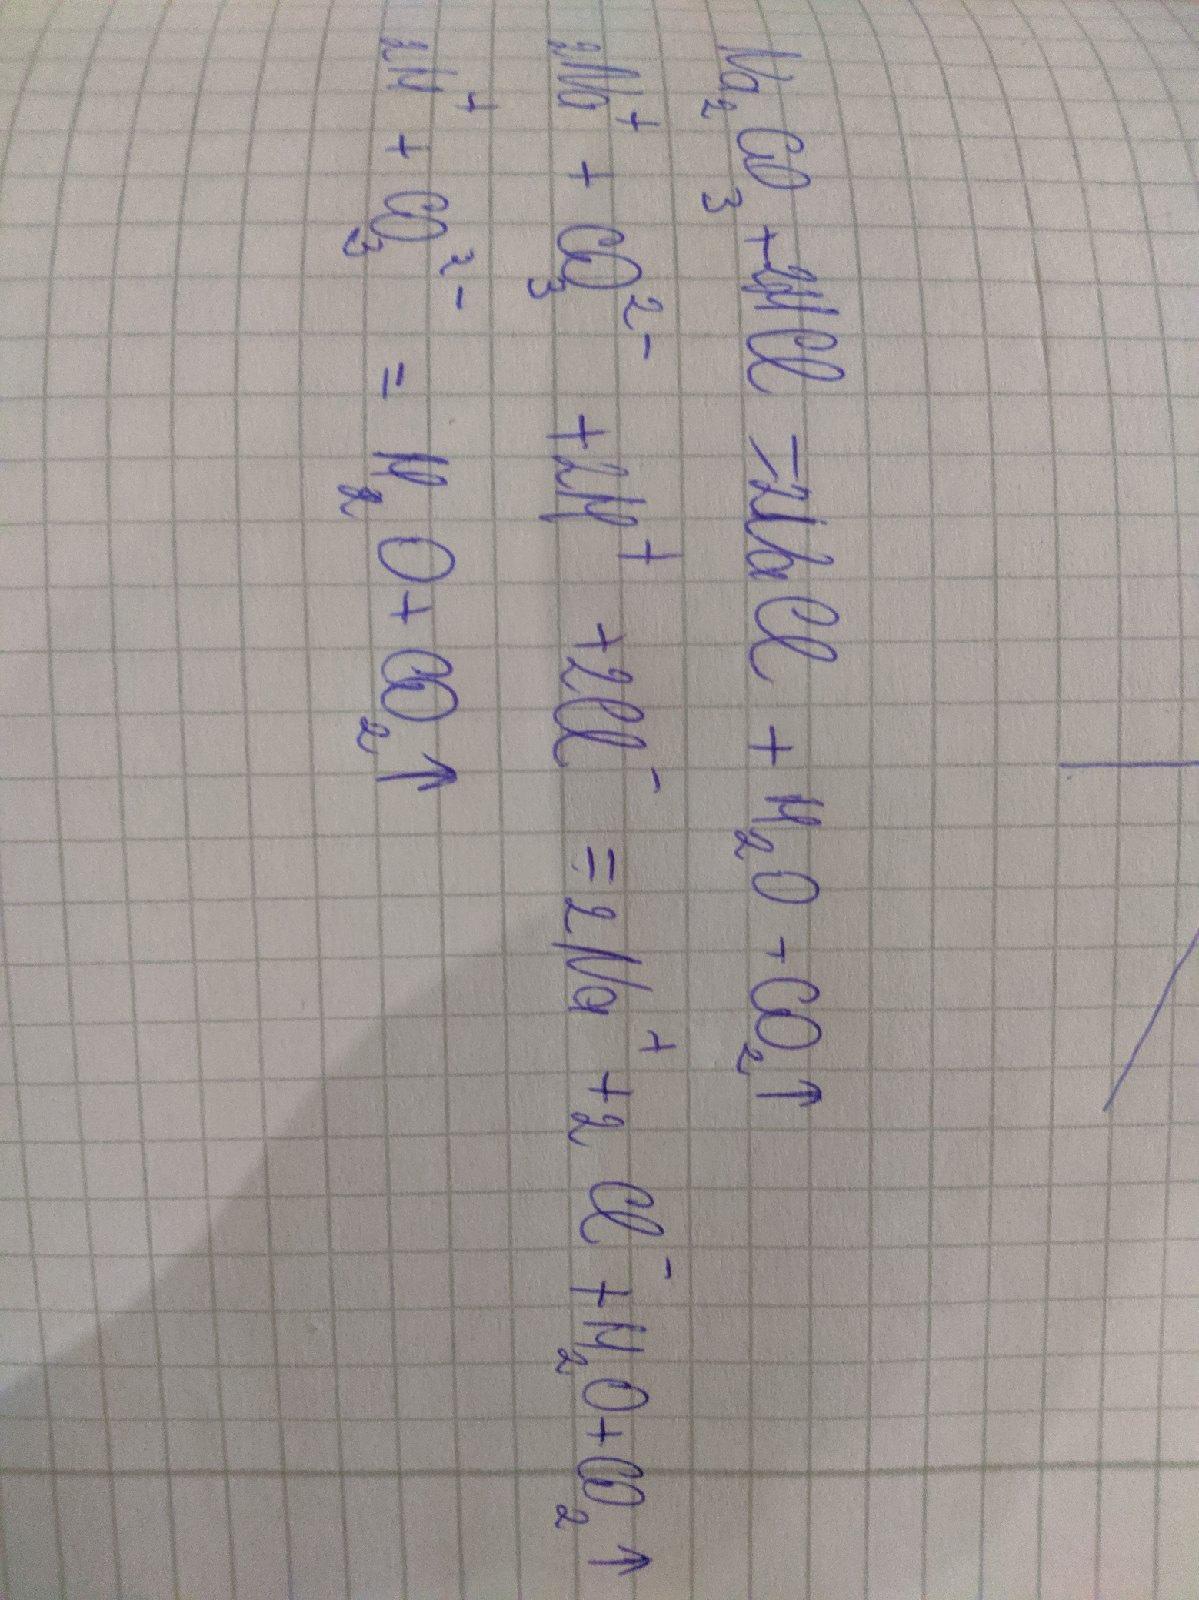 Na₂CO₃ + 2HCl = 2NaCl + H₂O + CO₂↑
2Na⁺ + CO₃²⁻ + 2H⁺ + 2Cl⁻ = 2Na⁺ + 2Cl⁻ + H₂O + CO₂↑
2H⁺ + CO₃²⁻ = H₂O + CO₂↑